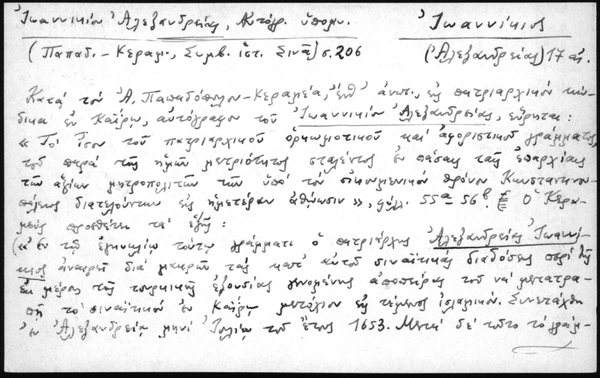 Ἰωαννικίου Ἀλεξανδρείας, Αὐτόγρ. ὑπομν. Ἰωαννίκιος
(Παπαδ. - Κεραμ., Συμβ. ἱστ. Σινᾶ) σ. 206 (Ἀλεξανδρείας) 17 αἰ.
Κατὰ τὸν Ἀ. Παπαδόπουλον - Κεραμέα, ἔνθ' ἀνωτ., εἰς πατριαρχικὸν κώ-
δικα ἐν Καΐρῳ, αὐτόγραφον τοῦ Ἰωαννικίου Ἀλεξανδρείας, εὕρηται:
« Τὸ ἴσον τοῦ πατριαρχικοῦ καὶ ἀφοριστικοῦ γράμματος
τοῦ παρὰ τῆς ἡμῶν μετριότητος σταλέντος ἐν πάσαις ταῖς ἐπαρχίαις
τῶν ἁγίων μητροπολιτῶν τῶν ὑπὸ τὸν οἰκουμενικὸν θρόνον Κωνσταντινου-
πόλεως διατελούντων εἰς ἡμετέραν », φύλλ. 55α - 56β. Ὁ Κερα-
μεὺς προσθέτει τὰ ἑξῆς:
(« Ἐν τῷ ἐγκυκλίῳ τούτῳ γράμματι ὁ πατριάρχης Ἀλεξανδρείας Ἰωαννί-
κιος ἀναιρεῖ διὰ μακρῶν τὰς κατ' αὐτοῦ σιναϊτικὰς διαδόσεις περὶ τῆς
ἐκ μέρους τῆς τουρκικῆς ἐξουσίας γενομένης ἀποπείρας τοῦ νὰ μετατρα-
πῇ τὸ σιναϊτικὸν ἐν Καΐρῳ μετόχιον εἰς τέμενος ἰσλαμικόν. Συνετάχθη
ἐν Ἀλεξανδρείᾳ μηνὶ Ἰουλίῳ τοῦ ἔτους 1653. Μετὰ δὲ τοῦτο τὸ γράμ-